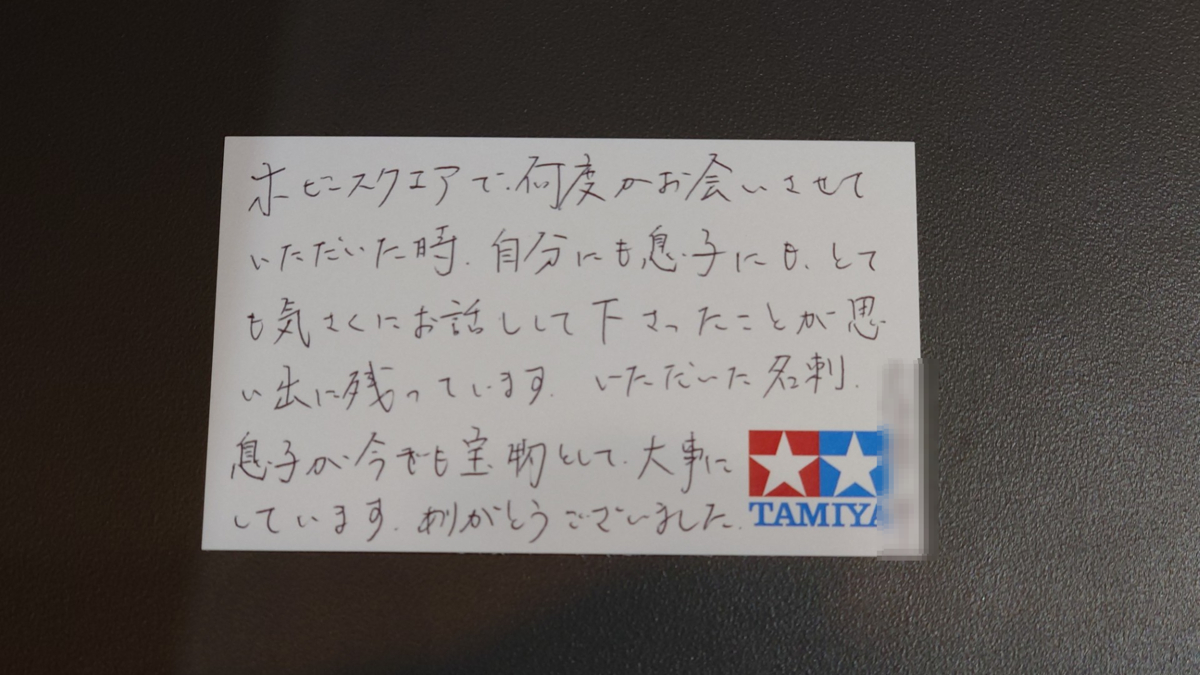 ホビースクエアで、何度かお会いさせて
いただいた時、自分にも息子にも、とて
も気さくにお話しして下さったことが思
い出に残っています。いただいた名刺、
息子が今でも宝物として、大事に
しています。ありがとうございました。
TAMIYA